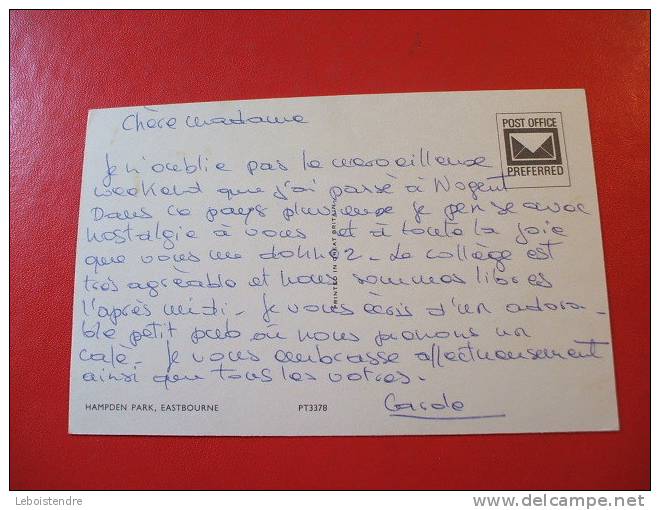 Chère madame
POST OFFICE
PREFERRED
Je n'oublie pas le merveilleuse
weekend que j'ai passé à Nogent
Dans ce pays pluvieuse je pense avec
nostalgie à vous et à toute la joie
que vous me donnez - Le collège est
très agréable et nous sommes libres
l'après midi - Je vous écris d'un adora-
ble petit pub où nous prenons un
café - Je vous embrasse affectueusement
ainsi que tous les votres.
Carole
PRINTED IN GREAT BRITAIN
HAMPDEN PARK, EASTBOURNE PT3378
Leboistendre
www.delcampe.net